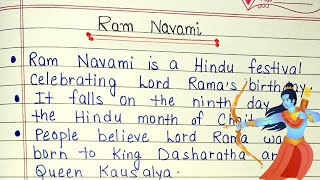 Ram Navami
• Ram Navami is a Hindu festival
celebrating Lord Rama's birthday
• It falls on the ninth day
the Hindu month of
• People believe Lord Rama
born to King Dasharatha
Queen Kausalya.